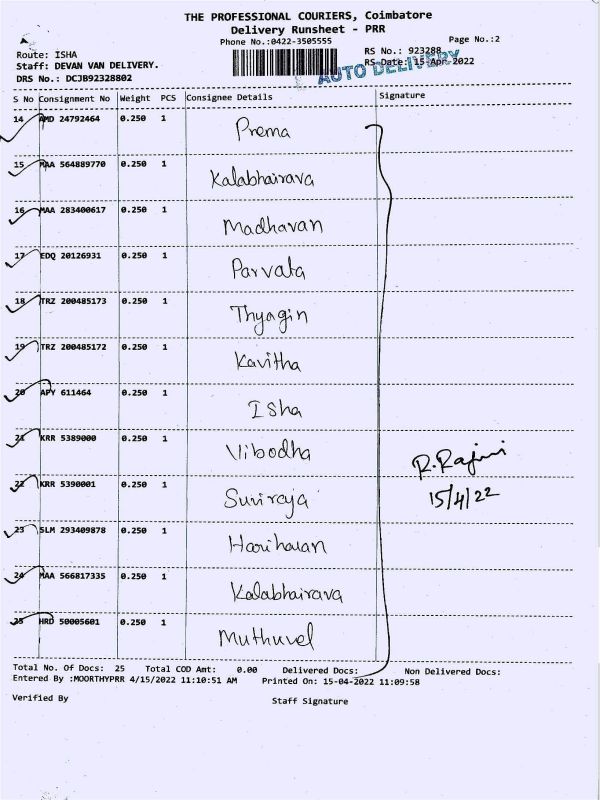 THE PROFESSIONAL COURIERS, Coimbatore
Delivery Runsheet - PRR
Phone No.:0422-3505555 Page No.:2
Route: ISHA RS No.: 923288
Staff: DEVAN VAN DELIVERY. RS Date: 15-Apr 2022
AUTO DELIVERY
DRS No.: DCJB92328802
S No Consignment No Weight PCS Consignee Details Signature
14 AMD 24792464 0.250 1 Prema
15 MAA 564889770 0.250 1 Kalabhairava
16 MAA 283400617 0.250 1 Madhavan
17 EDQ 20126931 0.250 1 Parvata
18 TRZ 200485173 0.250 1 Thyagin
19 TRZ 200485172 0.250 1 Kavitha
20 APY 611464 0.250 1 Isha
21 KRR 5389000 0.250 1 Vibodha
R.Rajini
22 KRR 5390001 0.250 1 Suviraja
15/4/22
23 SLM 293409878 0.250 1 Hariharan
24 MAA 566817335 0.250 1 Kalabhairava
25 HRD 50005601 0.250 1 Muthuvel
Total No. Of Docs: 25 Total COD Amt: 0.00 Delivered Docs: Non Delivered Docs:
Entered By :MOORTHYPRR 4/15/2022 11:10:51 AM Printed On: 15-04-2022 11:09:58
Verified By Staff Signature